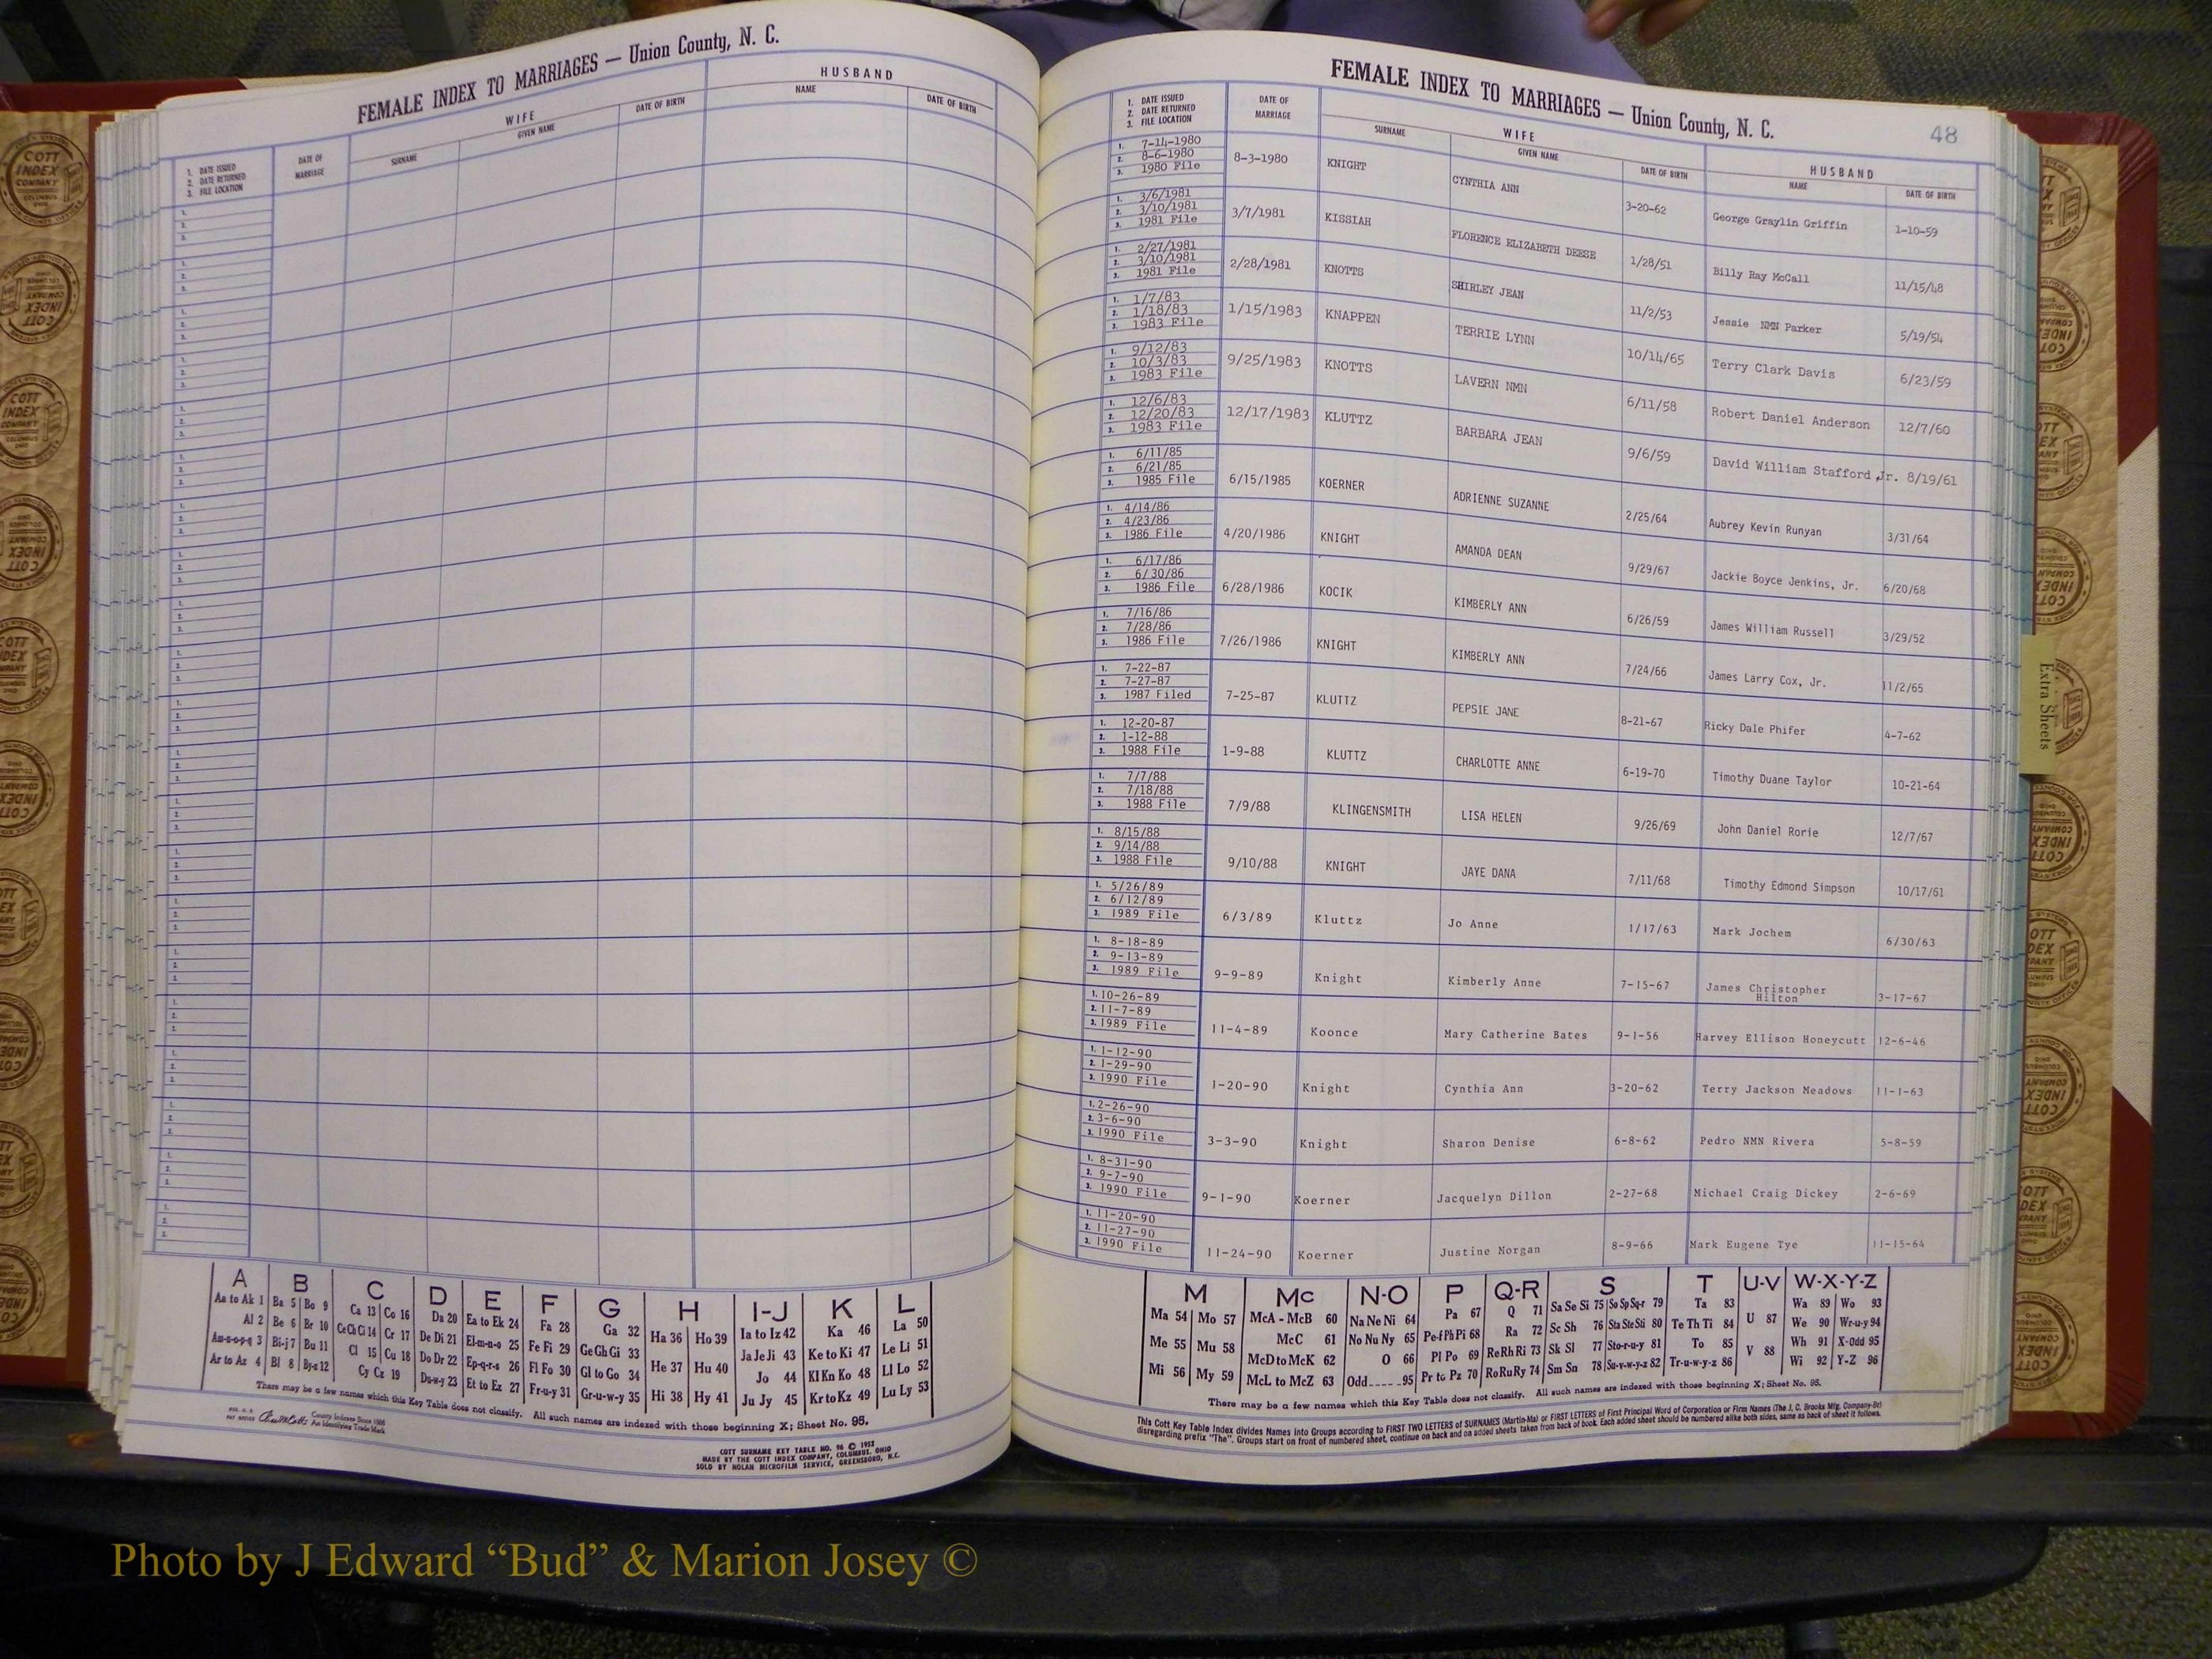 FEMALE INDEX TO MARRIAGES — Union County, N. C.
HUSBAND
WIFE
NAME
DATE OF BIRTH
GIVEN NAME
DATE OF BIRTH
SURNAME
DATE OF MARRIAGE
1. DATE ISSUED
2. DATE RETURNED
3. FILE LOCATION
A B C D E F G H I-J K L
Aa to Ak 1 Ba 5 Bo 9 Ca 13 Co 16 Da 20 Ea to Ek 24 Fa 28 Ga 32 Ha 36 Ho 39 Ia to Iz 42 Ka 46 La 50
Al 2 Be 6 Br 10 Ce Ch Ci 14 Cr 17 De Di 21 El-m-n-o 25 Fe Fi 29 Ge Gh Gi 33 Ja Je Ji 43 Ke to Ki 47 Le Li 51
Am-n-o-p-q 3 Bi-j 7 Bu 11 Cl 15 Cu 18 Do Dr 22 Ep-q-r-s 26 Fl Fo 30 Gl to Go 34 He 37 Hu 40 Jo 44 Kl Kn Ko 48 Ll Lo 52
Ar to Az 4 Bl 8 By-z 12 Cy Cz 19 Du-w-y 23 Et to Ez 27 Fr-u-y 31 Gr-u-w-y 35 Hi 38 Hy 41 Ju Jy 45 Kr to Kz 49 Lu Ly 53
There may be a few names which this Key Table does not classify. All such names are indexed with those beginning X; Sheet No. 95.
County Indexes Since 1888
An Identifying Trade Mark
COTT SURNAME KEY TABLE NO. 96 © 1952
MADE BY THE COTT INDEX COMPANY, COLUMBUS, OHIO
SOLD BY NOLAN MICROFILM SERVICE, GREENSBORO, N.C.
FEMALE INDEX TO MARRIAGES — Union County, N. C.
48
1. DATE ISSUED
2. DATE RETURNED
3. FILE LOCATION
DATE OF MARRIAGE
WIFE
SURNAME
GIVEN NAME
DATE OF BIRTH
HUSBAND
NAME
DATE OF BIRTH
1. 7-14-1980
2. 8-6-1980
3. 1980 File
8-3-1980 KNIGHT CYNTHIA ANN 3-20-62 George Graylin Griffin 1-10-59
1. 3/6/1981
2. 3/10/1981
3. 1981 File
3/7/1981 KISSIAH FLORENCE ELIZABETH DEESE 1/28/51 Billy Ray McCall 11/15/48
1. 2/27/1981
2. 3/10/1981
3. 1981 File
2/28/1981 KNOTTS SHIRLEY JEAN 11/2/53 Jessie NMN Parker 5/19/54
1. 1/7/83
2. 1/18/83
3. 1983 File
1/15/1983 KNAPPEN TERRIE LYNN 10/14/65 Terry Clark Davis 6/23/59
1. 9/12/83
2. 10/3/83
3. 1983 File
9/25/1983 KNOTTS LAVERN NMN 6/11/58 Robert Daniel Anderson 12/7/60
1. 12/6/83
2. 12/20/83
3. 1983 File
12/17/1983 KLUTTZ BARBARA JEAN 9/6/59 David William Stafford, Jr. 8/19/61
1. 6/11/85
2. 6/21/85
3. 1985 File
6/15/1985 KOERNER ADRIENNE SUZANNE 2/25/64 Aubrey Kevin Runyan 3/31/64
1. 4/14/86
2. 4/23/86
3. 1986 File
4/20/1986 KNIGHT AMANDA DEAN 9/29/67 Jackie Boyce Jenkins, Jr. 6/20/68
1. 6/17/86
2. 6/30/86
3. 1986 File
6/28/1986 KOCIK KIMBERLY ANN 6/26/59 James William Russell 3/29/52
1. 7/16/86
2. 7/28/86
3. 1986 File
7/26/1986 KNIGHT KIMBERLY ANN 7/24/66 James Larry Cox, Jr. 11/2/65
1. 7-22-87
2. 7-27-87
3. 1987 Filed
7-25-87 KLUTTZ PEPSIE JANE 8-21-67 Ricky Dale Phifer 4-7-62
1. 12-20-87
2. 1-12-88
3. 1988 File
1-9-88 KLUTTZ CHARLOTTE ANNE 6-19-70 Timothy Duane Taylor 10-21-64
1. 7/7/88
2. 7/18/88
3. 1988 File
7/9/88 KLINGENSMITH LISA HELEN 9/26/69 John Daniel Rorie 12/7/67
1. 8/15/88
2. 9/14/88
3. 1988 File
9/10/88 KNIGHT JAYE DANA 7/11/68 Timothy Edmond Simpson 10/17/61
1. 5/26/89
2. 6/12/89
3. 1989 File
6/3/89 Kluttz Jo Anne 1/17/63 Mark Jochem 6/30/63
1. 8-18-89
2. 9-13-89
3. 1989 File
9-9-89 Knight Kimberly Anne 7-15-67 James Christopher Hilton 3-17-67
1. 10-26-89
2. 11-7-89
3. 1989 File
11-4-89 Koonce Mary Catherine Bates 9-1-56 Harvey Ellison Honeycutt 12-6-46
1. 1-12-90
2. 1-29-90
3. 1990 File
1-20-90 Knight Cynthia Ann 3-20-62 Terry Jackson Meadows 11-1-63
1. 2-26-90
2. 3-6-90
3. 1990 File
3-3-90 Knight Sharon Denise 6-8-62 Pedro NMN Rivera 5-8-59
1. 8-31-90
2. 9-7-90
3. 1990 File
9-1-90 Koerner Jacquelyn Dillon 2-27-68 Michael Craig Dickey 2-6-69
1. 11-20-90
2. 11-27-90
3. 1990 File
11-24-90 Koerner Justine Morgan 8-9-66 Mark Eugene Tye 11-15-64
M Mc N-O P Q-R S T U-V W-X-Y-Z
Ma 54 Mo 57 McA - McB 60 Na Ne Ni 64 Pa 67 Q 71 Sa Se Si 75 So Sp Sq-r 79 Ta 83 U 87 Wa 89 Wo 93
Me 55 Mu 58 McC 61 No Nu Ny 65 Pe-f Ph Pi 68 Ra 72 Sc Sh 76 Sta Ste Sti 80 Te Th Ti 84 We 90 Wr-u-y 94
McD to McK 62 O 66 Pl Po 69 Re Rh Ri 73 Sk Sl 77 Sto-r-u-y 81 To 85 V 88 Wh 91 X-Odd 95
Mi 56 My 59 McL to McZ 63 Odd 95 Pr to Pz 70 Ro Ru Ry 74 Sm Sn 78 Su-v-w-y-z 82 Tr-u-w-y-z 86 Wi 92 Y-Z 96
There may be a few names which this Key Table does not classify. All such names are indexed with those beginning X; Sheet No. 95.
This Cott Key Table Index divides Names into Groups according to FIRST TWO LETTERS of SURNAMES (Martin-Ma) or FIRST LETTERS of First Principal Word of Corporation or Firm Names (The J. C. Brooks Mfg. Company-Br)
disregarding prefix "The". Groups start on front of numbered sheet, continue on back and on added sheets taken from back of book. Each added sheet should be numbered alike both sides, same as back of sheet it follows.
Extra Sheets
COTT INDEX COMPANY
Photo by J Edward “Bud” & Marion Josey ©